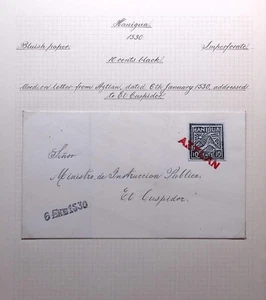 Maniqua
1530
Bluish paper. Imperforate
10 cents black
Used on letter from Aztlan, dated 6th January 1530, addressed
to El Cuspidor.
MANIQUA
AZTLAN
10 10
Señor
Ministro de Instruccion Publica,
El Cuspidor.
6 ENE 1530